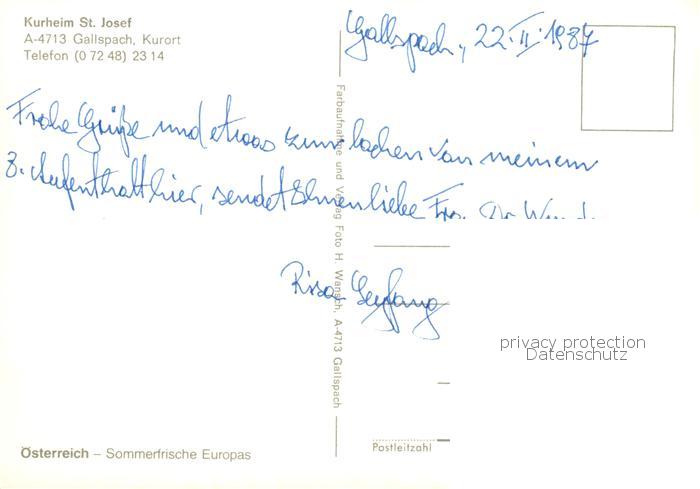 Kurheim St. Josef
A-4713 Gallspach, Kurort
Telefon (0 72 48) 23 14
Gallspach, 22.II.1987
Frohe Grüße und etwas zum lachen von meinem
3. Aufenthalt hier, sendet Ihnen liebe Fr. Dr.
Farbaufnahme und Verlag Foto H. Wansch, A-4713 Gallspach
privacy protection
Datenschutz
Postleitzahl
Österreich – Sommerfrische Europas